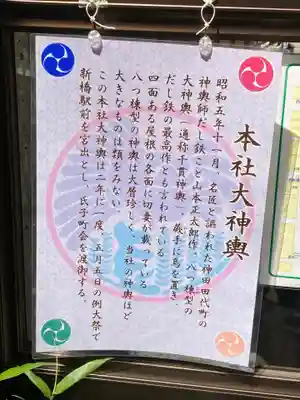 本社大神輿
昭和五年十一月、名匠と謳われた神田田代町の
神輿師だし鉄こと山本正太郎作、八つ棟型の
大神輿、通称千貫神輿、蕨手に鳥を置き、
だし鉄の最高作とも言われている
四面ある屋根の各面に切妻が載っている
八つ棟型の神輿は大層珍しく、当社の神輿ほど
大きなものは類をみない
この本社大神輿は二年に一度、五月五日の例大祭で
新橋駅前を宮出とし、氏子町会を渡御する。